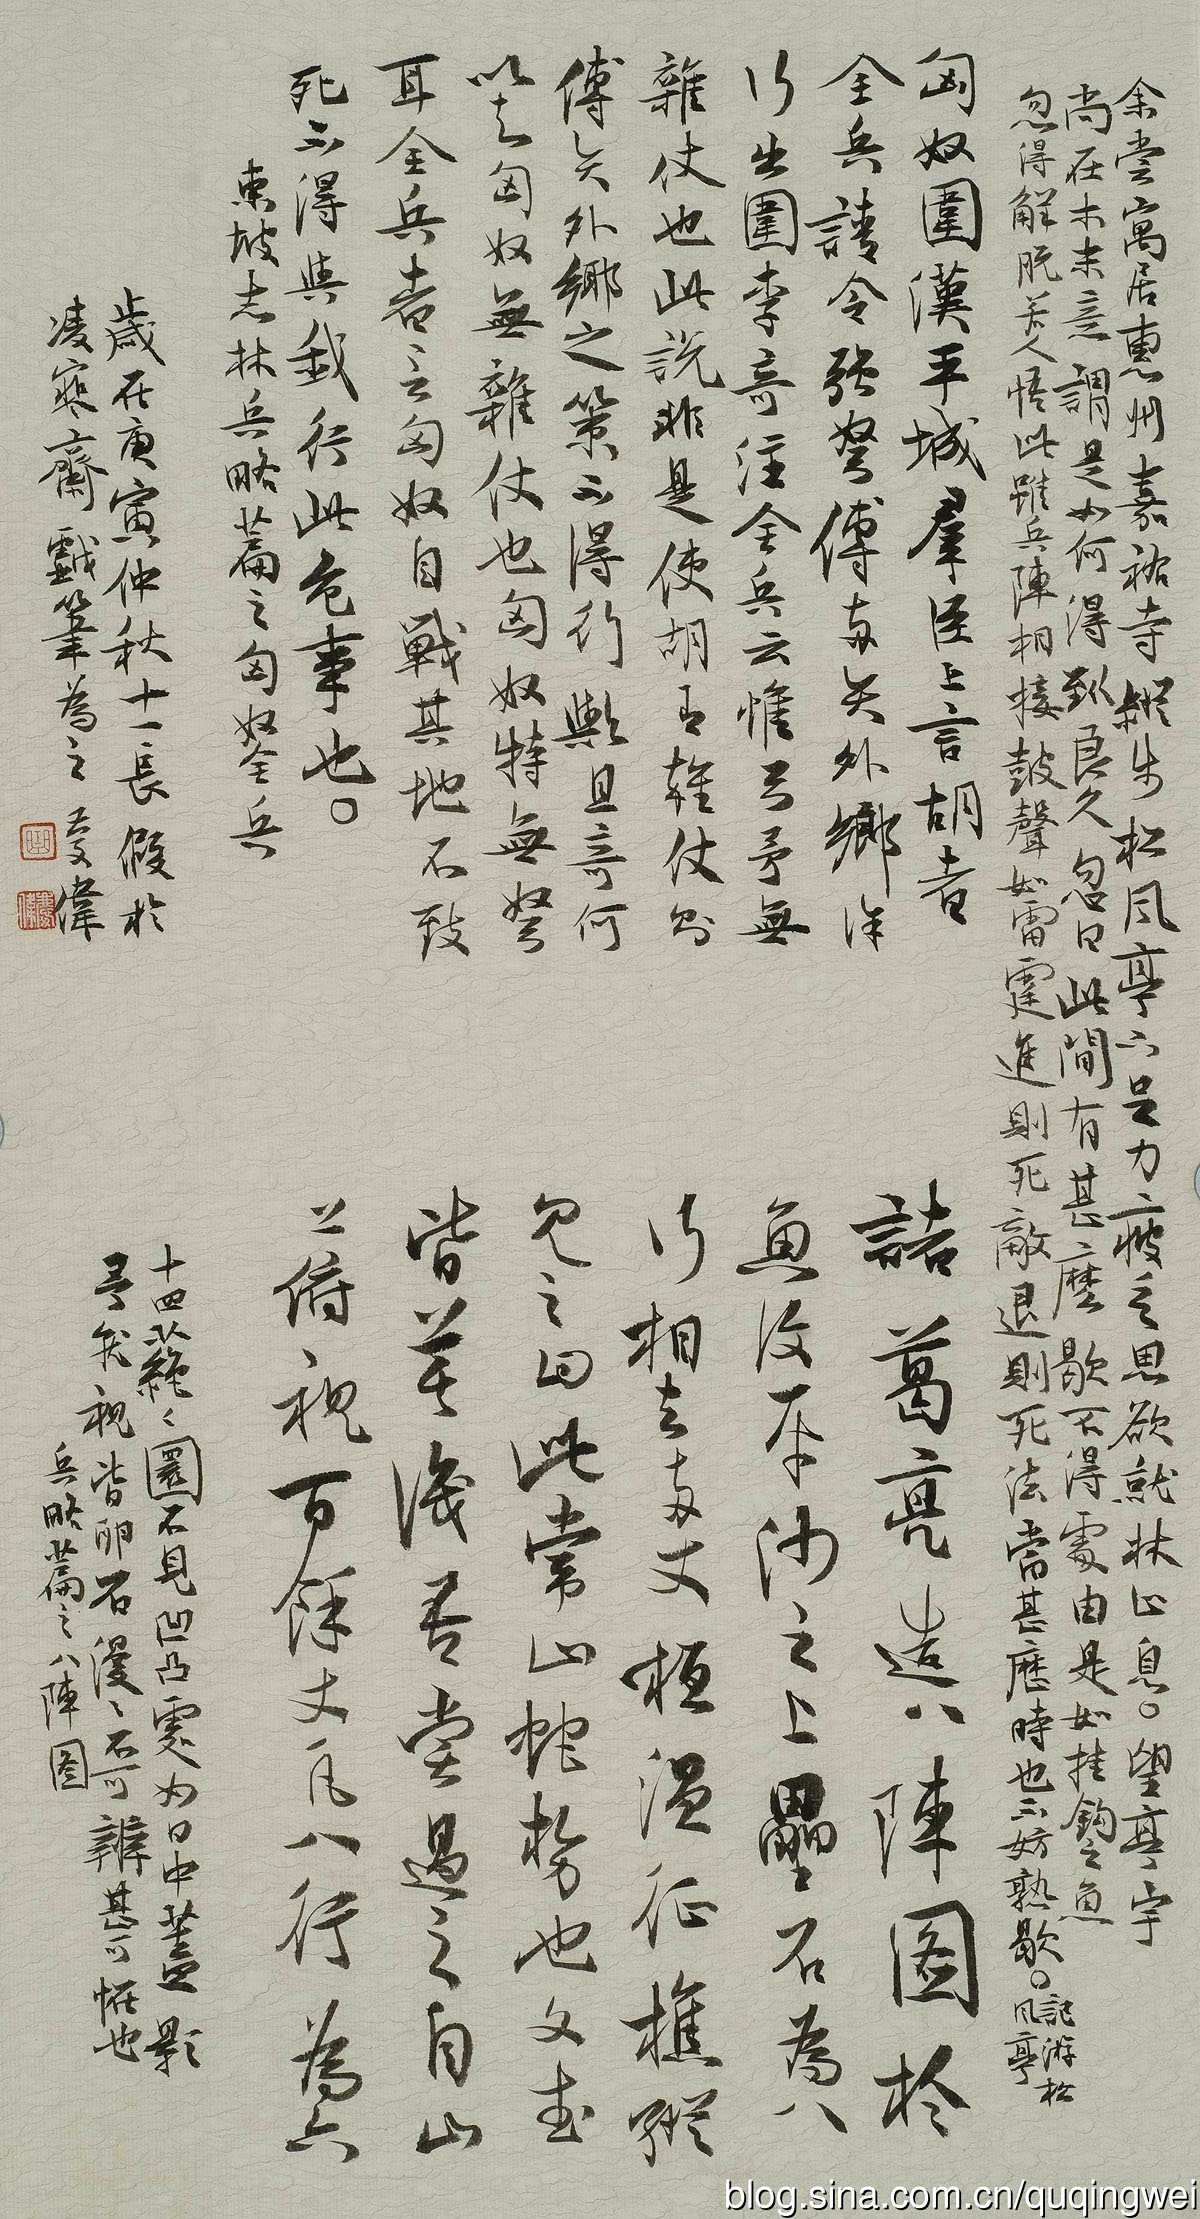 余嘗寓居惠州嘉祐寺縱步松風亭下足力疲乏思欲就林止息望亭宇
尚在木末意謂是如何得到良久忽曰此間有甚麼歇不得處由是如挂鈎之魚
忽得解脫若人悟此雖兵陣相接鼓聲如雷霆進則死敵退則死法當甚麼時也不妨熟歇
記游松
風亭
匈奴圍漢平城羣臣上言胡者
全兵請令強弩傅兩矢外鄉徐
行出圍李奇注全兵云惟弓矛無
雜仗也此說非是使胡有雜仗則
傅矢外鄉之策不得行歟且奇何
以知匈奴無雜仗也匈奴特無弩
耳全兵者言匈奴自戰其地不致
死不得與我行此危事也
東坡志林兵略篇之匈奴全兵
歲在庚寅仲秋十一長假於
凌寒齋戲筆為之 慶偉
諸葛亮造八陣圖於
魚復平沙之上壘石為八
行相去兩丈桓溫征樵縱
見之曰此常山蛇勢也文武
皆莫識吾嘗過之自山
上俯視百餘丈凡八行為六
十四蕝蕝圜不見凹凸處如日中蓋影
予就視皆卵石漫漫不可辨甚可怪也
兵略篇之八陣圖
blog.sina.com.cn/quqingwei